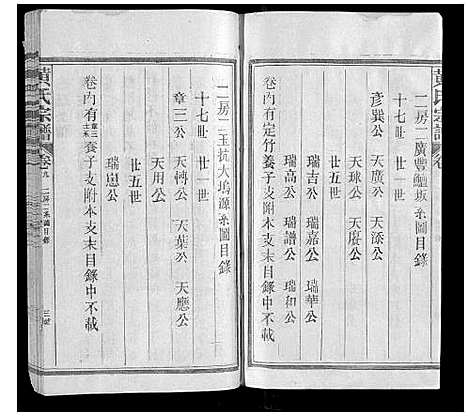 黄氏宗譜
卷
二房二廣豐鱷坂系圖目錄
十七世 廿一世
彦巽公 天廣公 天添公
天球公 天賡公
廿五世
瑞吉公 瑞嘉公 瑞華公
瑞高公 瑞譜公 瑞和公
卷內有定竹養子支附本支末目錄中不載
二房二玉抗大塢源系圖目錄
十七世 廿一世
章三公 天轉公 天葉公 天應公
天用公
廿五世
瑞恩公
卷內有章三養子支附本支末目錄中不載
黄氏宗譜
卷九 二房一系圖目錄